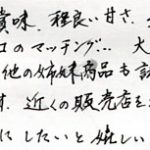 賞味、程良い甘さ、
コのマッチング… 大
他の姉妹商品も試
す. 近くの販売店を
にしたいと嬉しい